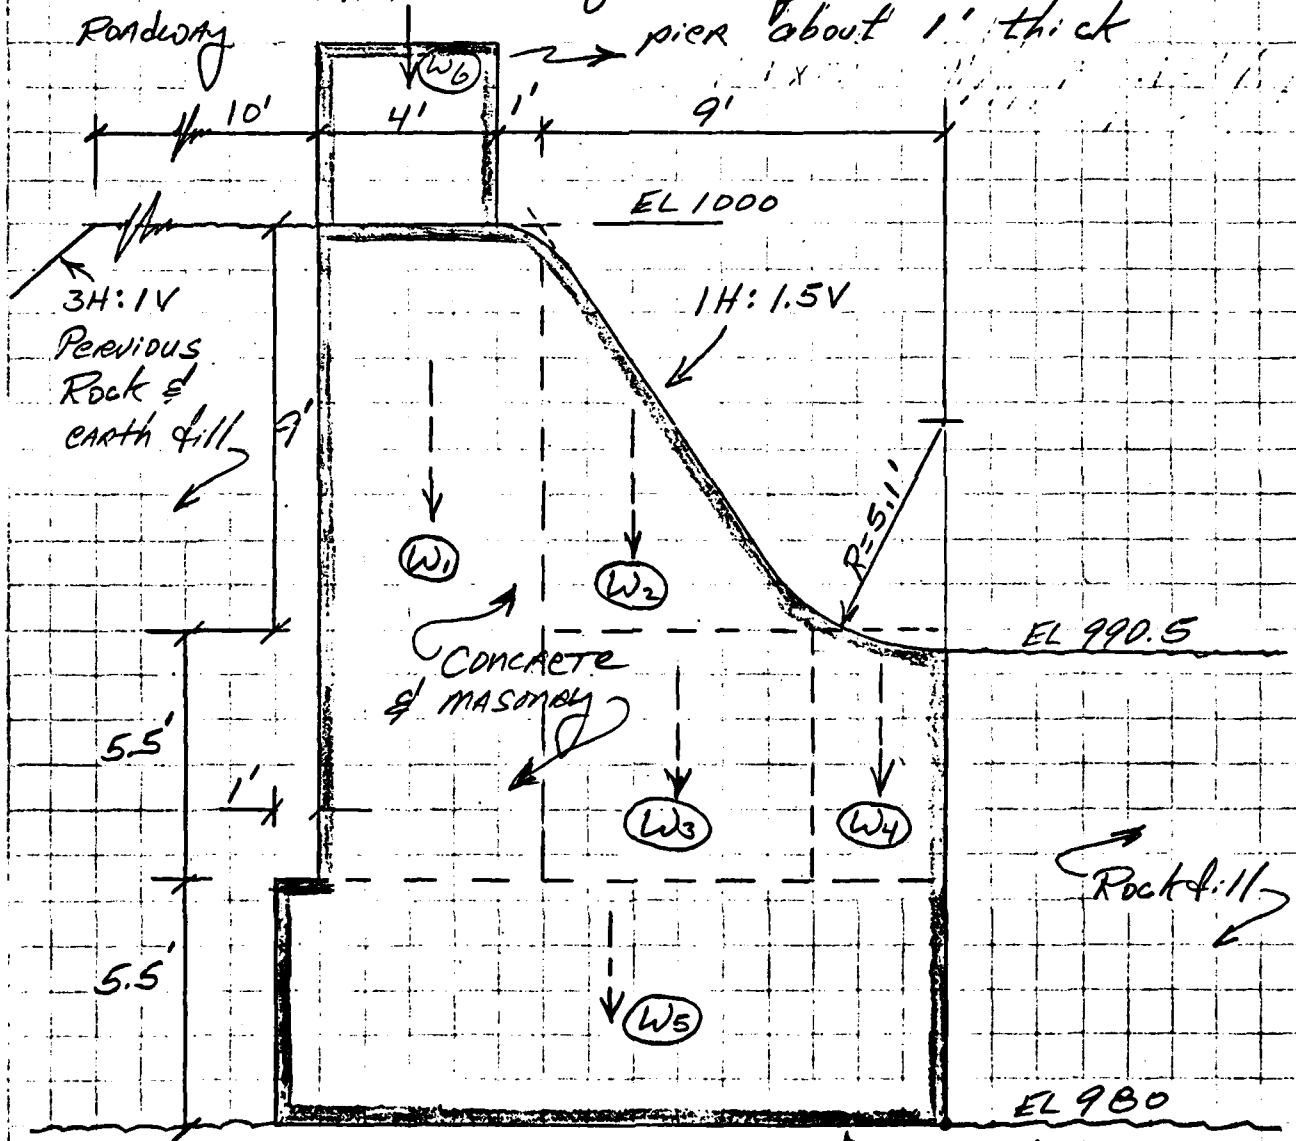 Roadway
pier about 1' thick
W6
10'
4'
1'
9'
EL 1000
3H:1V
Pervious
Rock &
earth fill
9'
1H:1.5V
R=5.1'
W1
W2
EL 990.5
Concrete
& masonry
5.5'
1'
W3
W4
Rockfill
5.5'
W5
EL 980